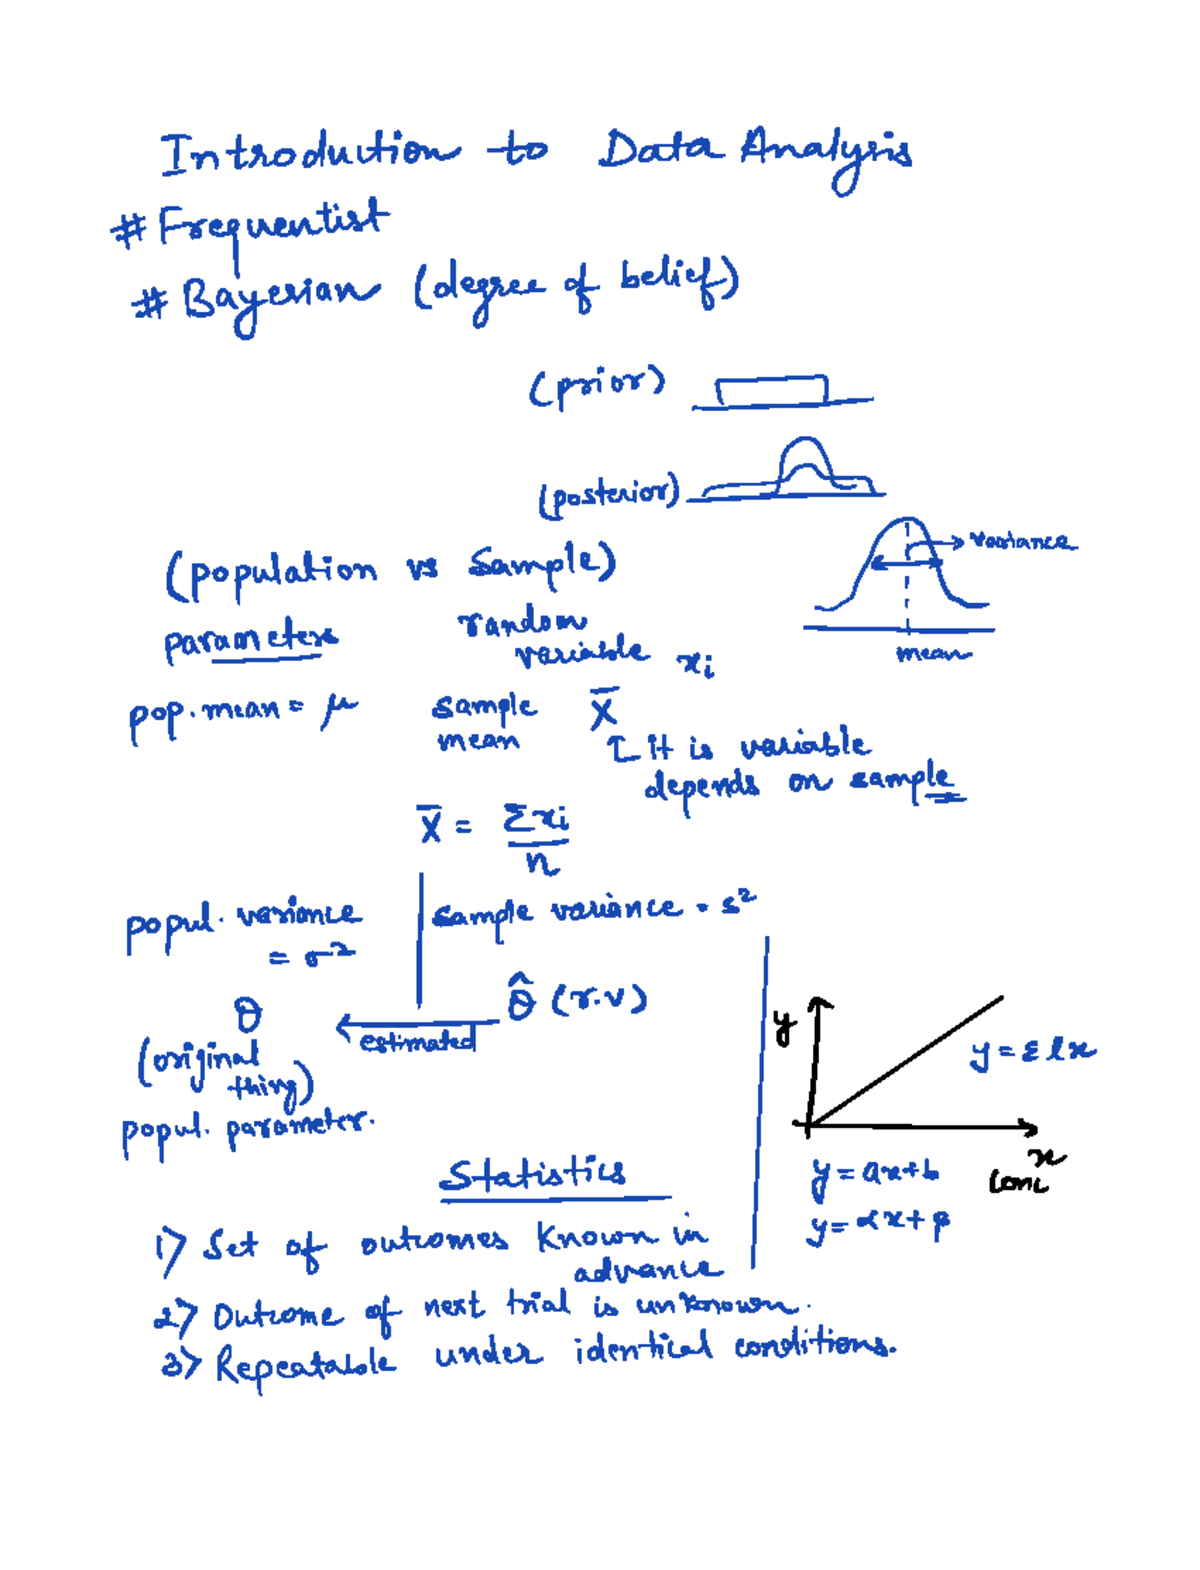 Introduction to Data Analysis
# Frequentist
# Bayesian (degree of belief)
(prior)
(posterior)
variance
mean
(population vs Sample)
parameters random
variable xi
pop. mean = μ sample X̄
mean
it is variable
depends on sample
X̄ = Σxi
n
popul. variance sample variance = s²
= σ²
θ θ̂ (r.v)
estimated
(original
thing)
popul. parameter.
y
y = ε l x
x
conc
y = ax+b
y = αx+β
Statistics
1) Set of outcomes known in
advance
2) Outcome of next trial is unknown.
3) Repeatable under identical conditions.